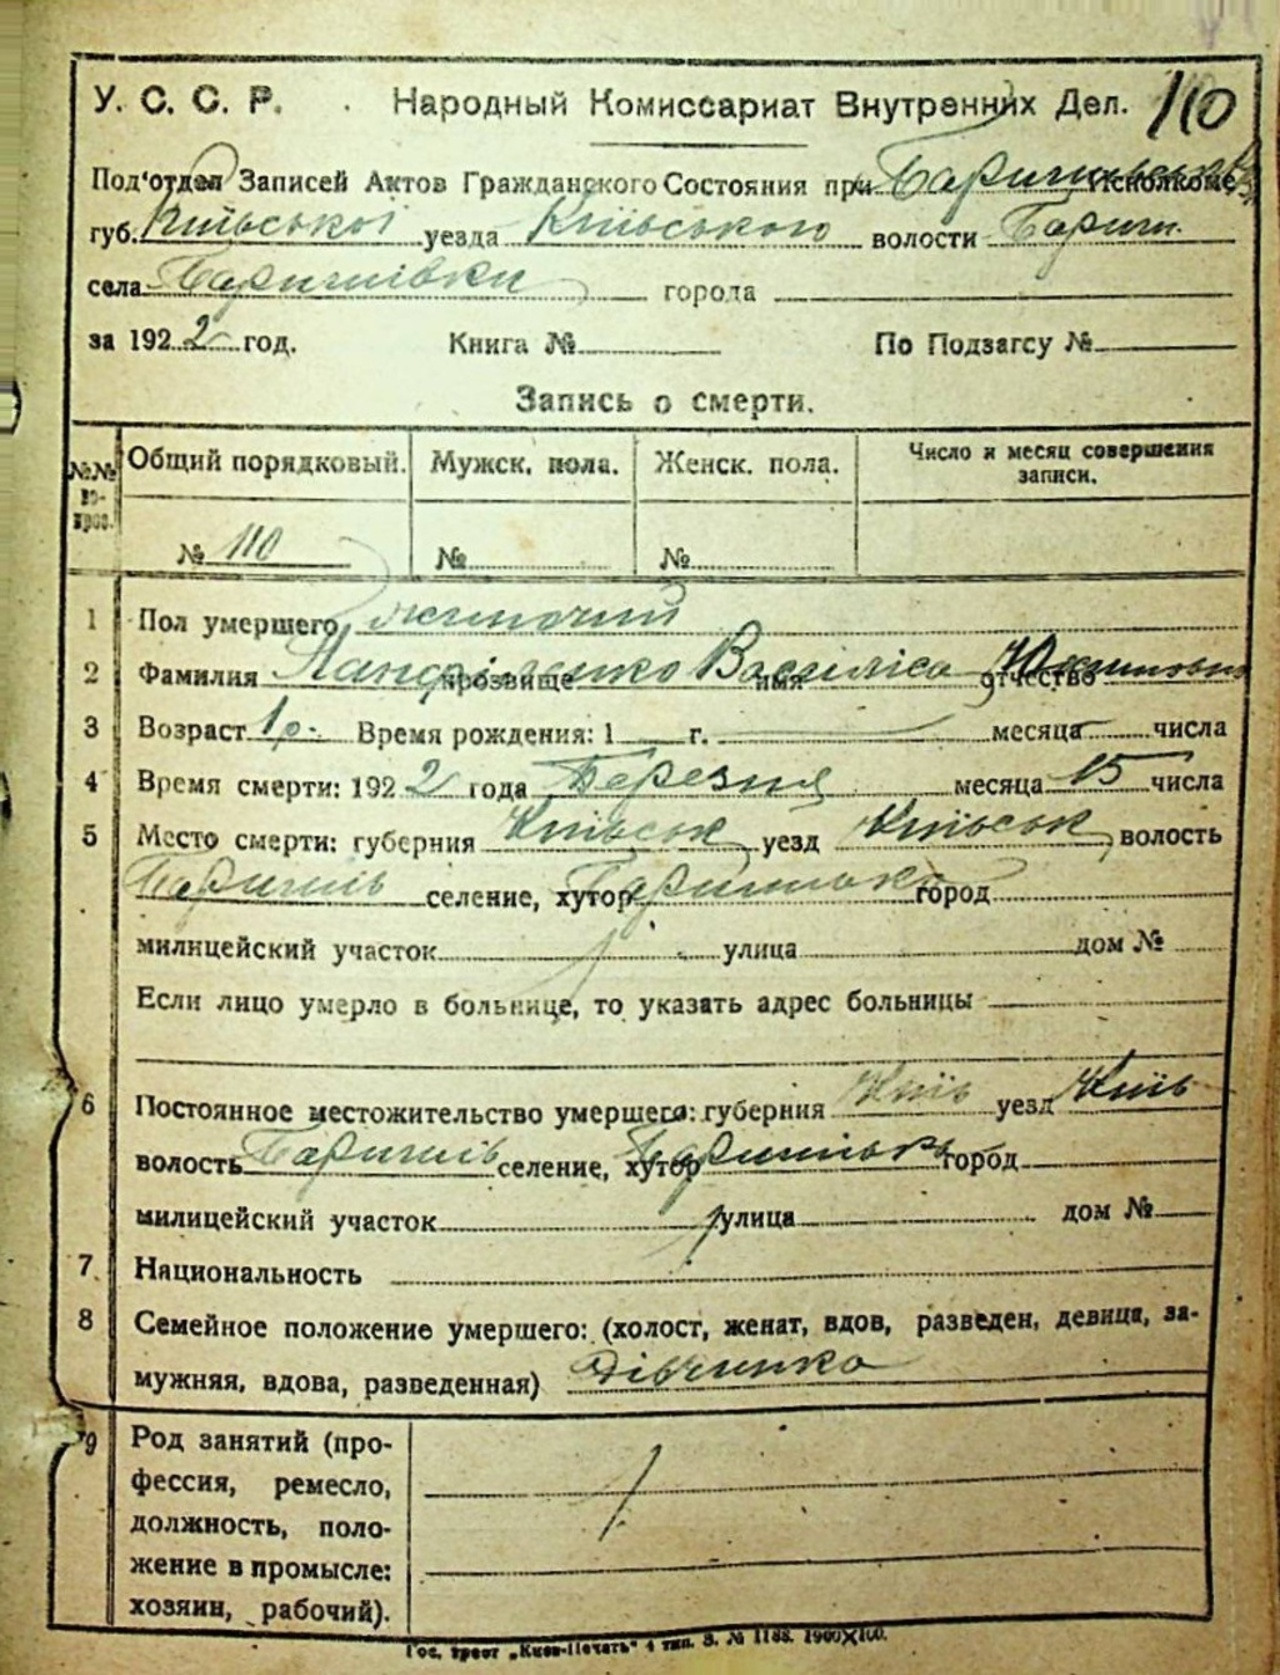 У. С. С. Р. Народный Комиссариат Внутренних Дел. 110
Под'отдел Записей Актов Гражданского Состояния при Исполкоме
губ. Київської уезда Київського волости Бариш.
села Баришівки города
за 1922 год. Книга № По Подзагсу №
Запись о смерти.
№№ вопрос. Общий порядковый. Мужск. пола. Женск. пола. Число и месяц совершения записи.
№ 110 № №
1 Пол умершего жіночий
2 Фамилия прозвище Панфіленко имя Василіса отчество
3 Возраст 1 р. Время рождения: 1 г. месяца числа
4 Время смерти: 1922 года Березня месяца 15 числа
5 Место смерти: губерния Київськ уезд Київськ, волость
Баришів селение, хутор город
милицейский участок улица дом №
Если лицо умерло в больнице, то указать адрес больницы
6 Постоянное местожительство умершего: губерния Київ уезд Київ
волость Баришів селение, хутор город
милицейский участок улица дом №
7 Национальность
8 Семейное положение умершего: (холост, женат, вдов, разведен, девица, за-
мужняя, вдова, разведенная) Дівчинка
9 Род занятий (про-
фессия, ремесло,
должность, поло-
жение в промысле:
хозяин, рабочий).
Гос. трест „Киев-Печать" 4 тип. З. № 1188. 1900Х100.